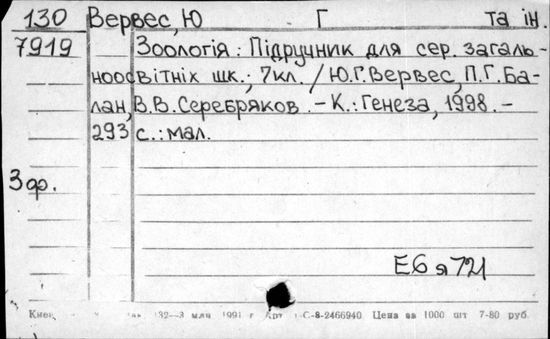 130 Вервес, Ю Г та ін.
7919 Зоологія: Підручник для сер. загаль-
ноосвітніх шк.; 7кл. / Ю.Г. Вервес, П.Г. Ба-
лан, В.В. Серебряков. – К.: Генеза, 1998. –
293 с.: мал.
3 ф.
Е6я721
132—3 млн 1991 С-8-2466940 Цена за 1000 шт 7-80 руб.